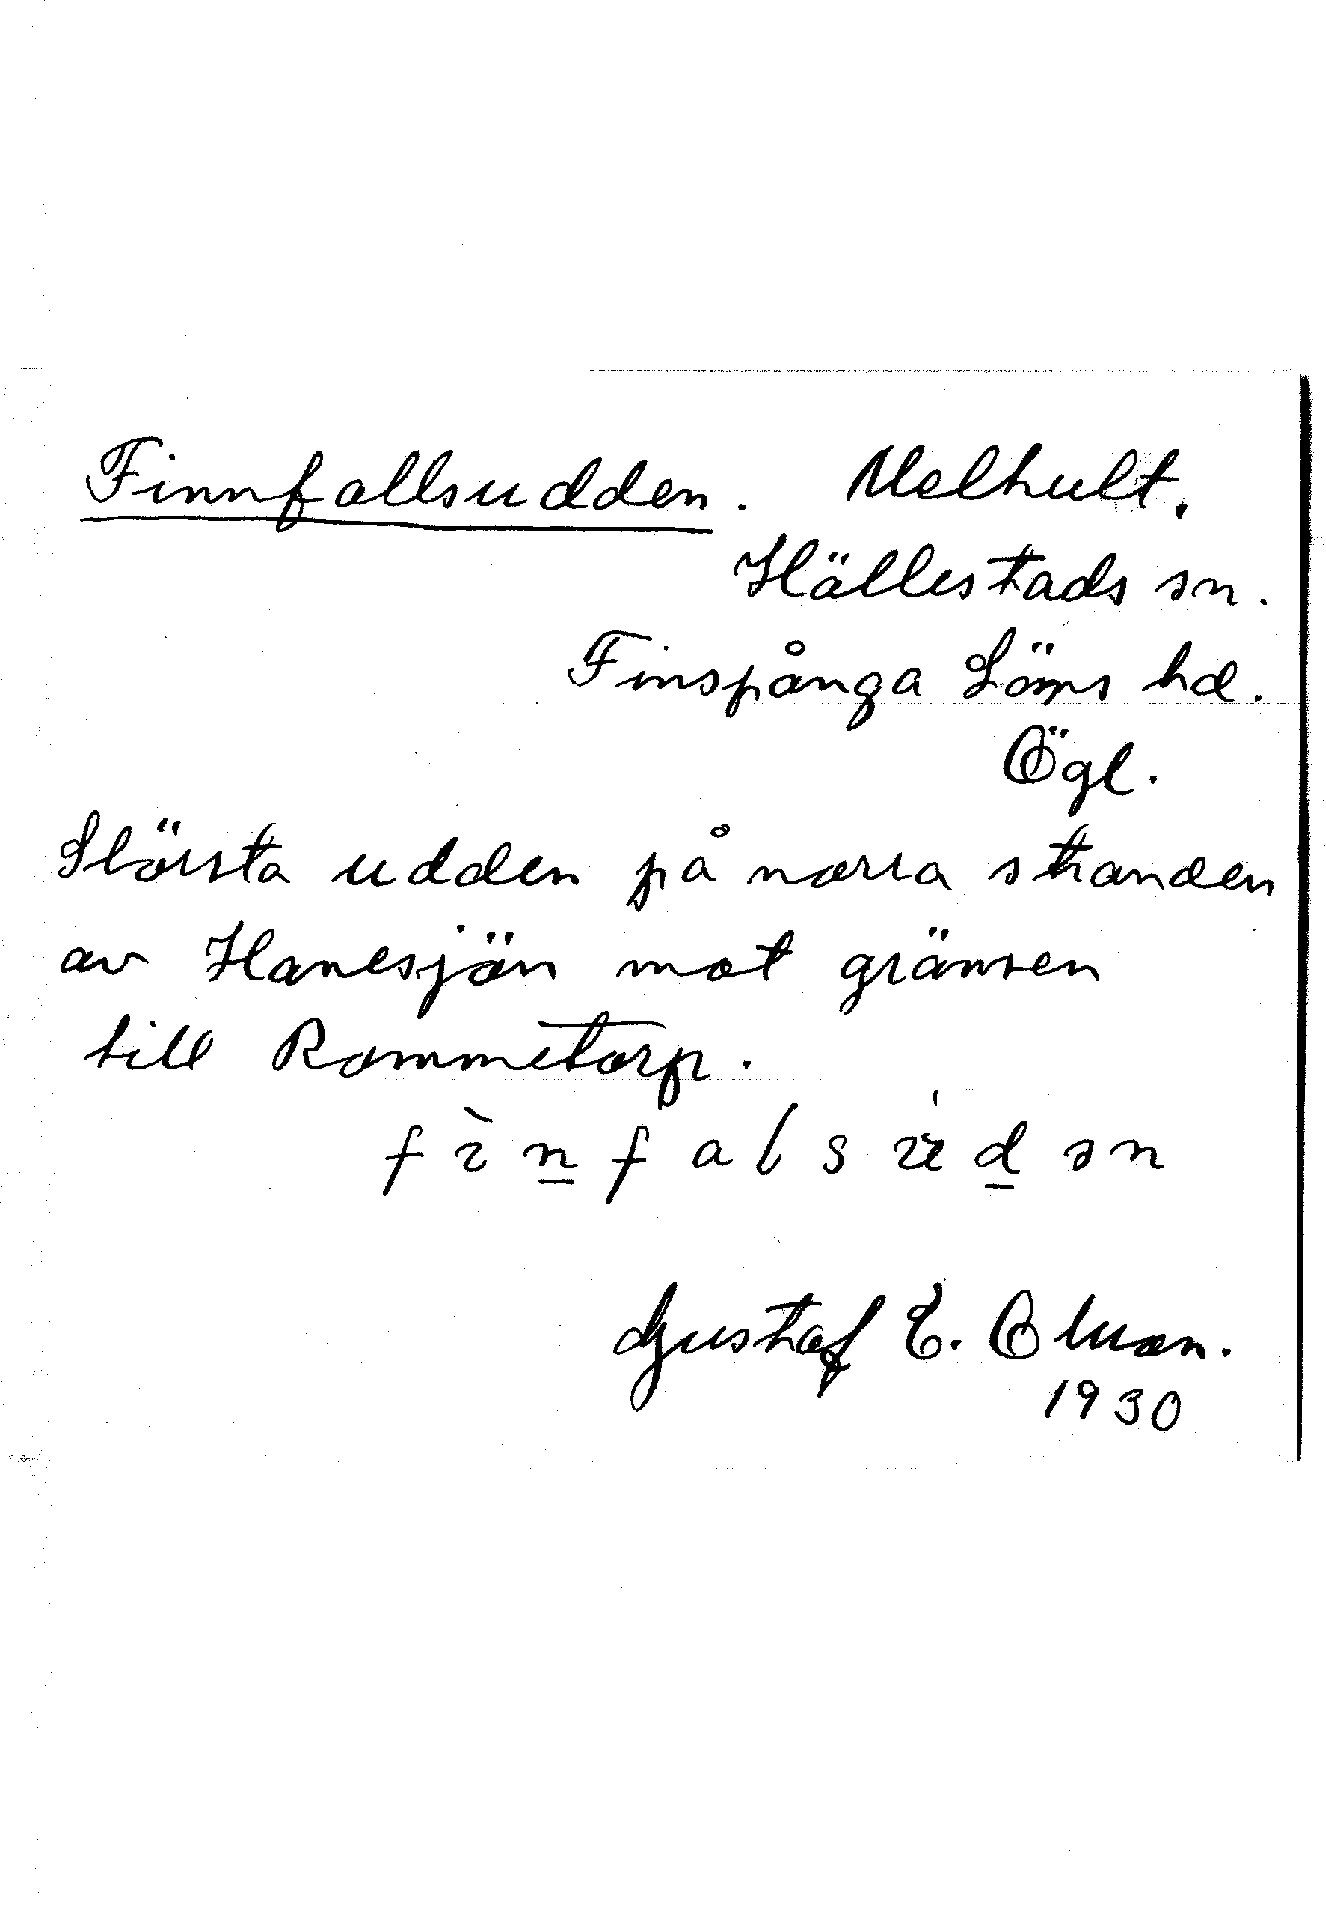 Finnfallsudden. Melhult.
Hällestads sn.
Finspånga Läns hd.
Ögl.
Största udden på norra stranden
av Hanesjön mot gränsen
till Rommetorp.
Gustaf E.
1930